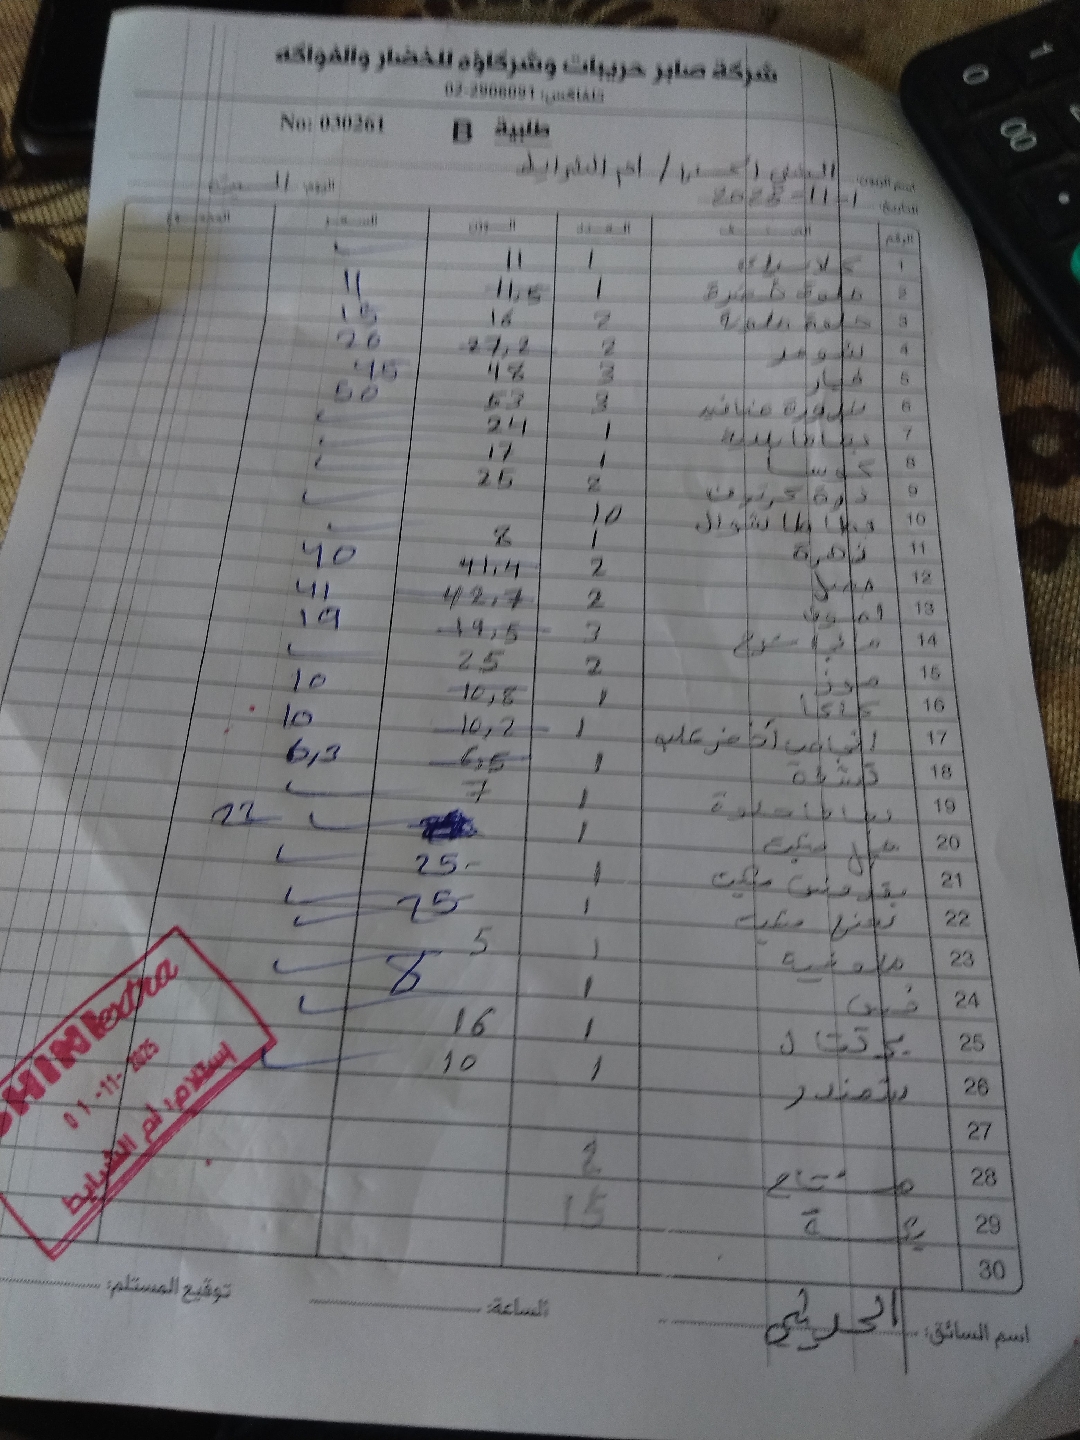 شركة صابر حريبات وشركاؤه للخضار والفواكه
تلفاكس: 02-2906091
No: 030261 B طلبية
اسم الزبون: / ام الشرايط
التاريخ: 1-11-2025 اليوم: السبت
الرقم الصنف العدد الوزن السعر المجموع
1 1 11
2 حلوة خضرة 1 11,5 11
3 حلوة ملونة 2 16 15
4 شومر 2 27,2 26
5 خيار 3 48 45
6 بندورة عناقيد 3 53 50
7 1 24
8 كوسا 1 17
9 ذرة كرتون 2 25
10 بطاطا شوال 10
11 زهرة 1 8
12 بصل 2 41,4 40
13 ليمون 2 42,7 41
14 3 19,5 19
15 موز 2 25
16 1 10,8 10
17 1 10,2 10
18 1 6,5 6,3
19 بطاطا حلوة 1 7
20 1 22
21 بقدونس مكيت 1 25
22 نعنع مكيت 1 25
23 ملوخية 1 5
24 خس 1 8
25 برتقال 1 16
26 شمندر 1 10
27
28 2
29 15
30
SHINI extra
01-11-2025
إستلام، ام الشرايط
اسم السائق: الساعة: توقيع المستلم: